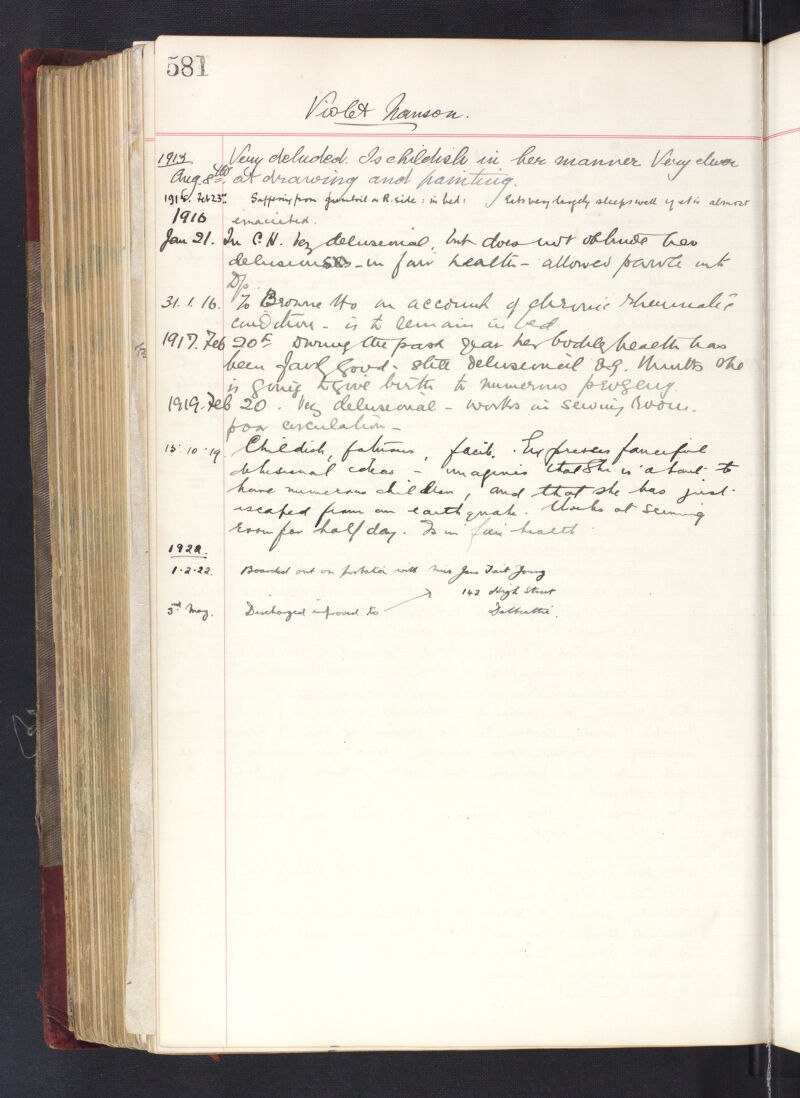 581
Violet Nanson.
1914 Very deluded. Is childish in her manner. Very clever
Aug. 8th. at drawing and painting.
1915. Feb 23rd. Suffering from gumboil on R. side: in bed: Eats very largely sleeps well yet is almost
1916 emaciated.
Jan 21. In C.H. Very delusional, but does not obtrude her
delusions - in fair health - allowed parole with
31.1.16. To Browne Ho on account of chronic rheumatic
condition - is to remain in bed
1917. Feb 20th During the past year her bodily health has
been fairly good - still delusional e.g. thinks she
is going to give birth to numerous progeny.
1919. Feb 20. Very delusional - works in sewing room.
poor circulation -
15.10.19. Childish, fatuous, facile. Expresses fanciful
delusional ideas - imagines that she is about to
have numerous children, and that she has just
escaped from an earthquake. Works at sewing
room for half day. Is in fair health
1922.
1.2.22. Boarded out on probation with Mrs Jane Tait Young
142 High Street
3rd May. Discharged improved to Dalbeattie.